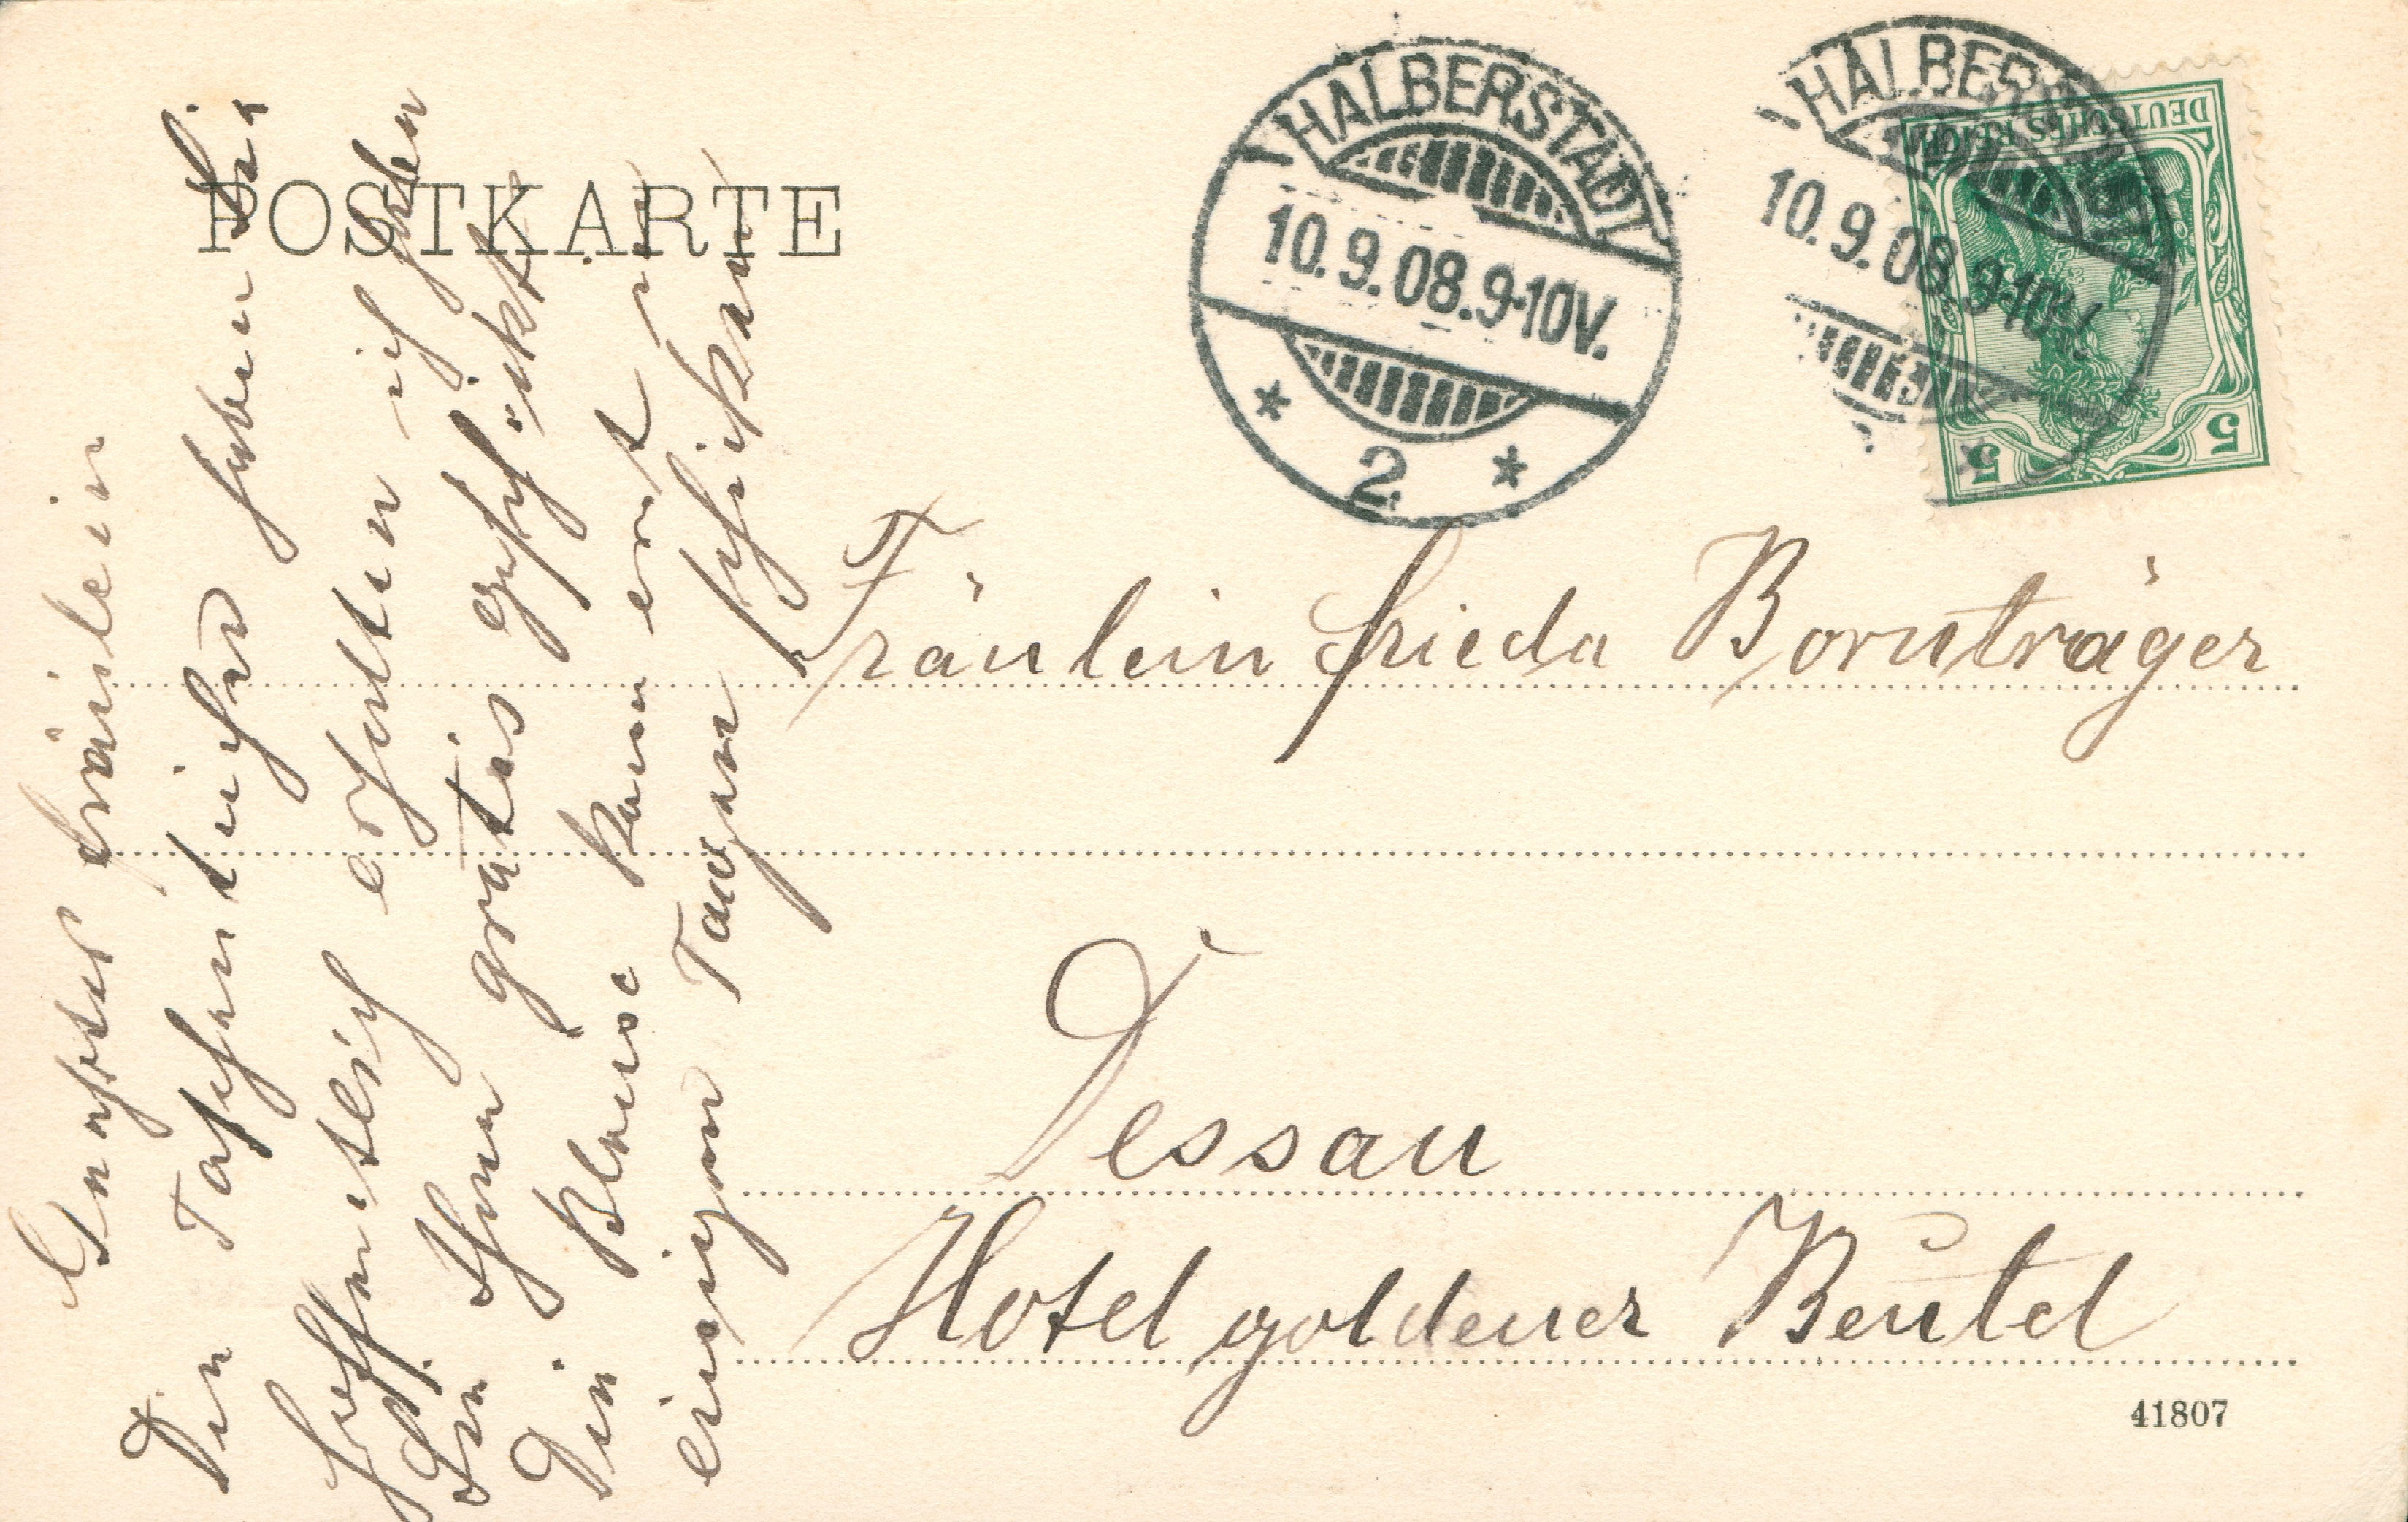 POSTKARTE
HALBERSTADT
10.9.08.9-10V.
* 2 *
HALBERSTADT
10.9.08.9-10V.
DEUTSCHES REICH
5 5
Fräulein Frieda Bornträger
Dessau
Hotel goldener Beutel
41807
Fräulein
Den Taschentücher haben Sie
hoffentlich erhalten ich haben
Sie Ihnen gratis geschickt
Die Blouse kann erst in
einigen Tagen schicken